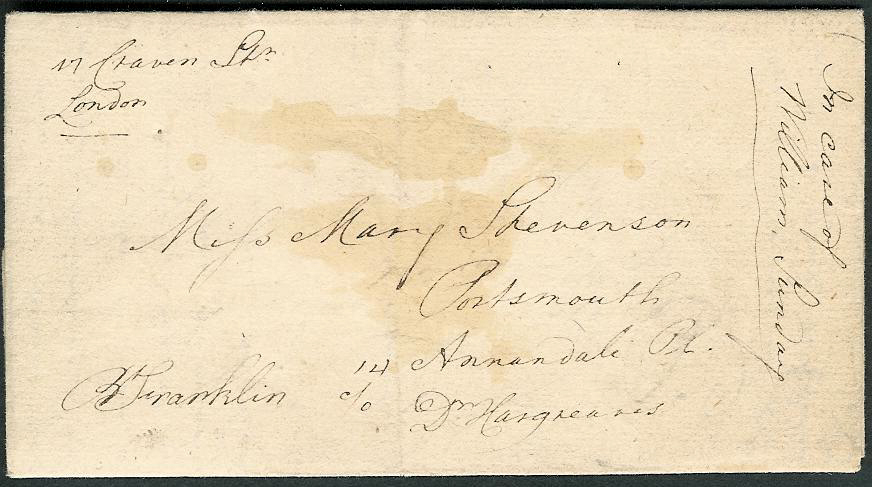 17 Craven Str.
London
Miss Mary Stevenson
Portsmouth
14 Annandale Pl.
c/o Dr. Hargreaves
B Franklin
In care of
William, Sunday